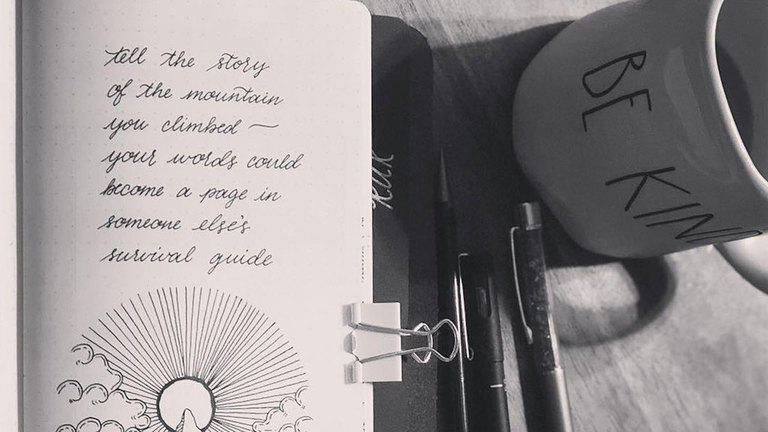 tell the story
of the mountain
you climbed —
your words could
become a page in
someone else's
survival guide
BE KIND